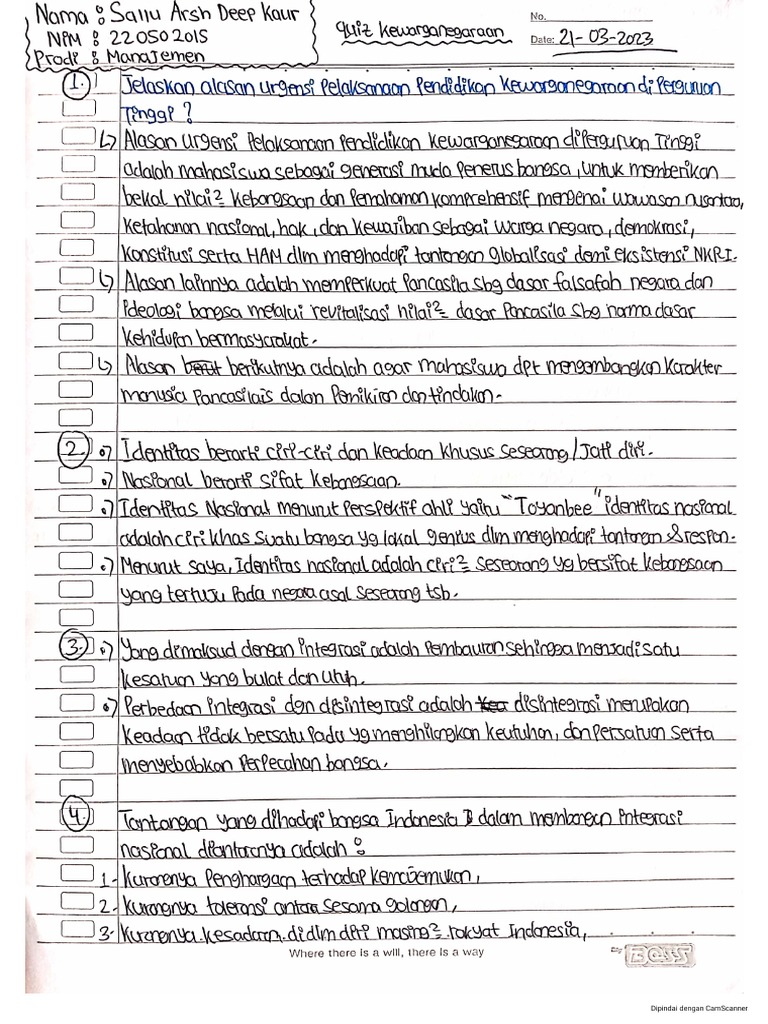 Nama : Sallu Arsh Deep Kaur
NPM : 220502015
Prodi : Manajemen
Quiz Kewarganegaraan
No.
Date: 21-03-2023
1. Jelaskan alasan urgensi Pelaksanaan Pendidikan Kewarganegaraan di Perguruan
Tinggi ?
↳ Alasan urgensi Pelaksanaan Pendidikan Kewarganegaraan di Perguruan Tinggi
adalah mahasiswa sebagai generasi muda Penerus bangsa, untuk memberikan
bekal nilai² Kebangsaan dan Pemahaman komprehensif mengenai wawasan nusantara,
Ketahanan nasional, hak, dan Kewajiban sebagai warga negara, demokrasi,
Konstitusi serta HAM dlm menghadapi tantangan globalisasi demi eksistensi NKRI.
↳ Alasan lainnya adalah memperkuat Pancasila sbg dasar falsafah negara dan
ideologi bangsa melalui revitalisasi nilai² dasar Pancasila sbg norma dasar
Kehidupan bermasyarakat.
↳ Alasan berikutnya adalah agar mahasiswa dpt mengembangkan Karakter
manusia Pancasilais dalam Pemikiran dan tindakan.
2. •) Identitas berarti ciri-ciri dan keadaan khusus seseorang / Jati diri.
•) Nasional berarti sifat Kebangsaan.
•) Identitas Nasional menurut Perspektif ahli yaitu "Toyanbee" identitas nasional
adalah ciri khas suatu bangsa yg lokal genius dlm menghadapi tantangan & respon.
•) Menurut saya, Identitas nasional adalah ciri² seseorang yg bersifat kebangsaan
yang tertuju Pada negara asal seseorang tsb.
3. •) Yang dimaksud dengan integrasi adalah Pembauran sehingga menjadi satu
kesatuan yang bulat dan utuh.
•) Perbedaan integrasi dgn disintegrasi adalah disintegrasi merupakan
Keadaan tidak bersatu Padu yg menghilangkan keutuhan, dan Persatuan serta
menyebabkan Perpecahan bangsa.
4. Tantangan yang dihadapi bangsa Indonesia dalam membangun integrasi
nasional diantaranya adalah :
1. Kurangnya Penghargaan terhadap kemajemukan,
2. Kurangnya toleransi antara sesama golongan,
3. Kurangnya Kesadaran didlm diri masing² rakyat Indonesia,
Where there is a will, there is a way
by BOSS
Dipindai dengan CamScanner